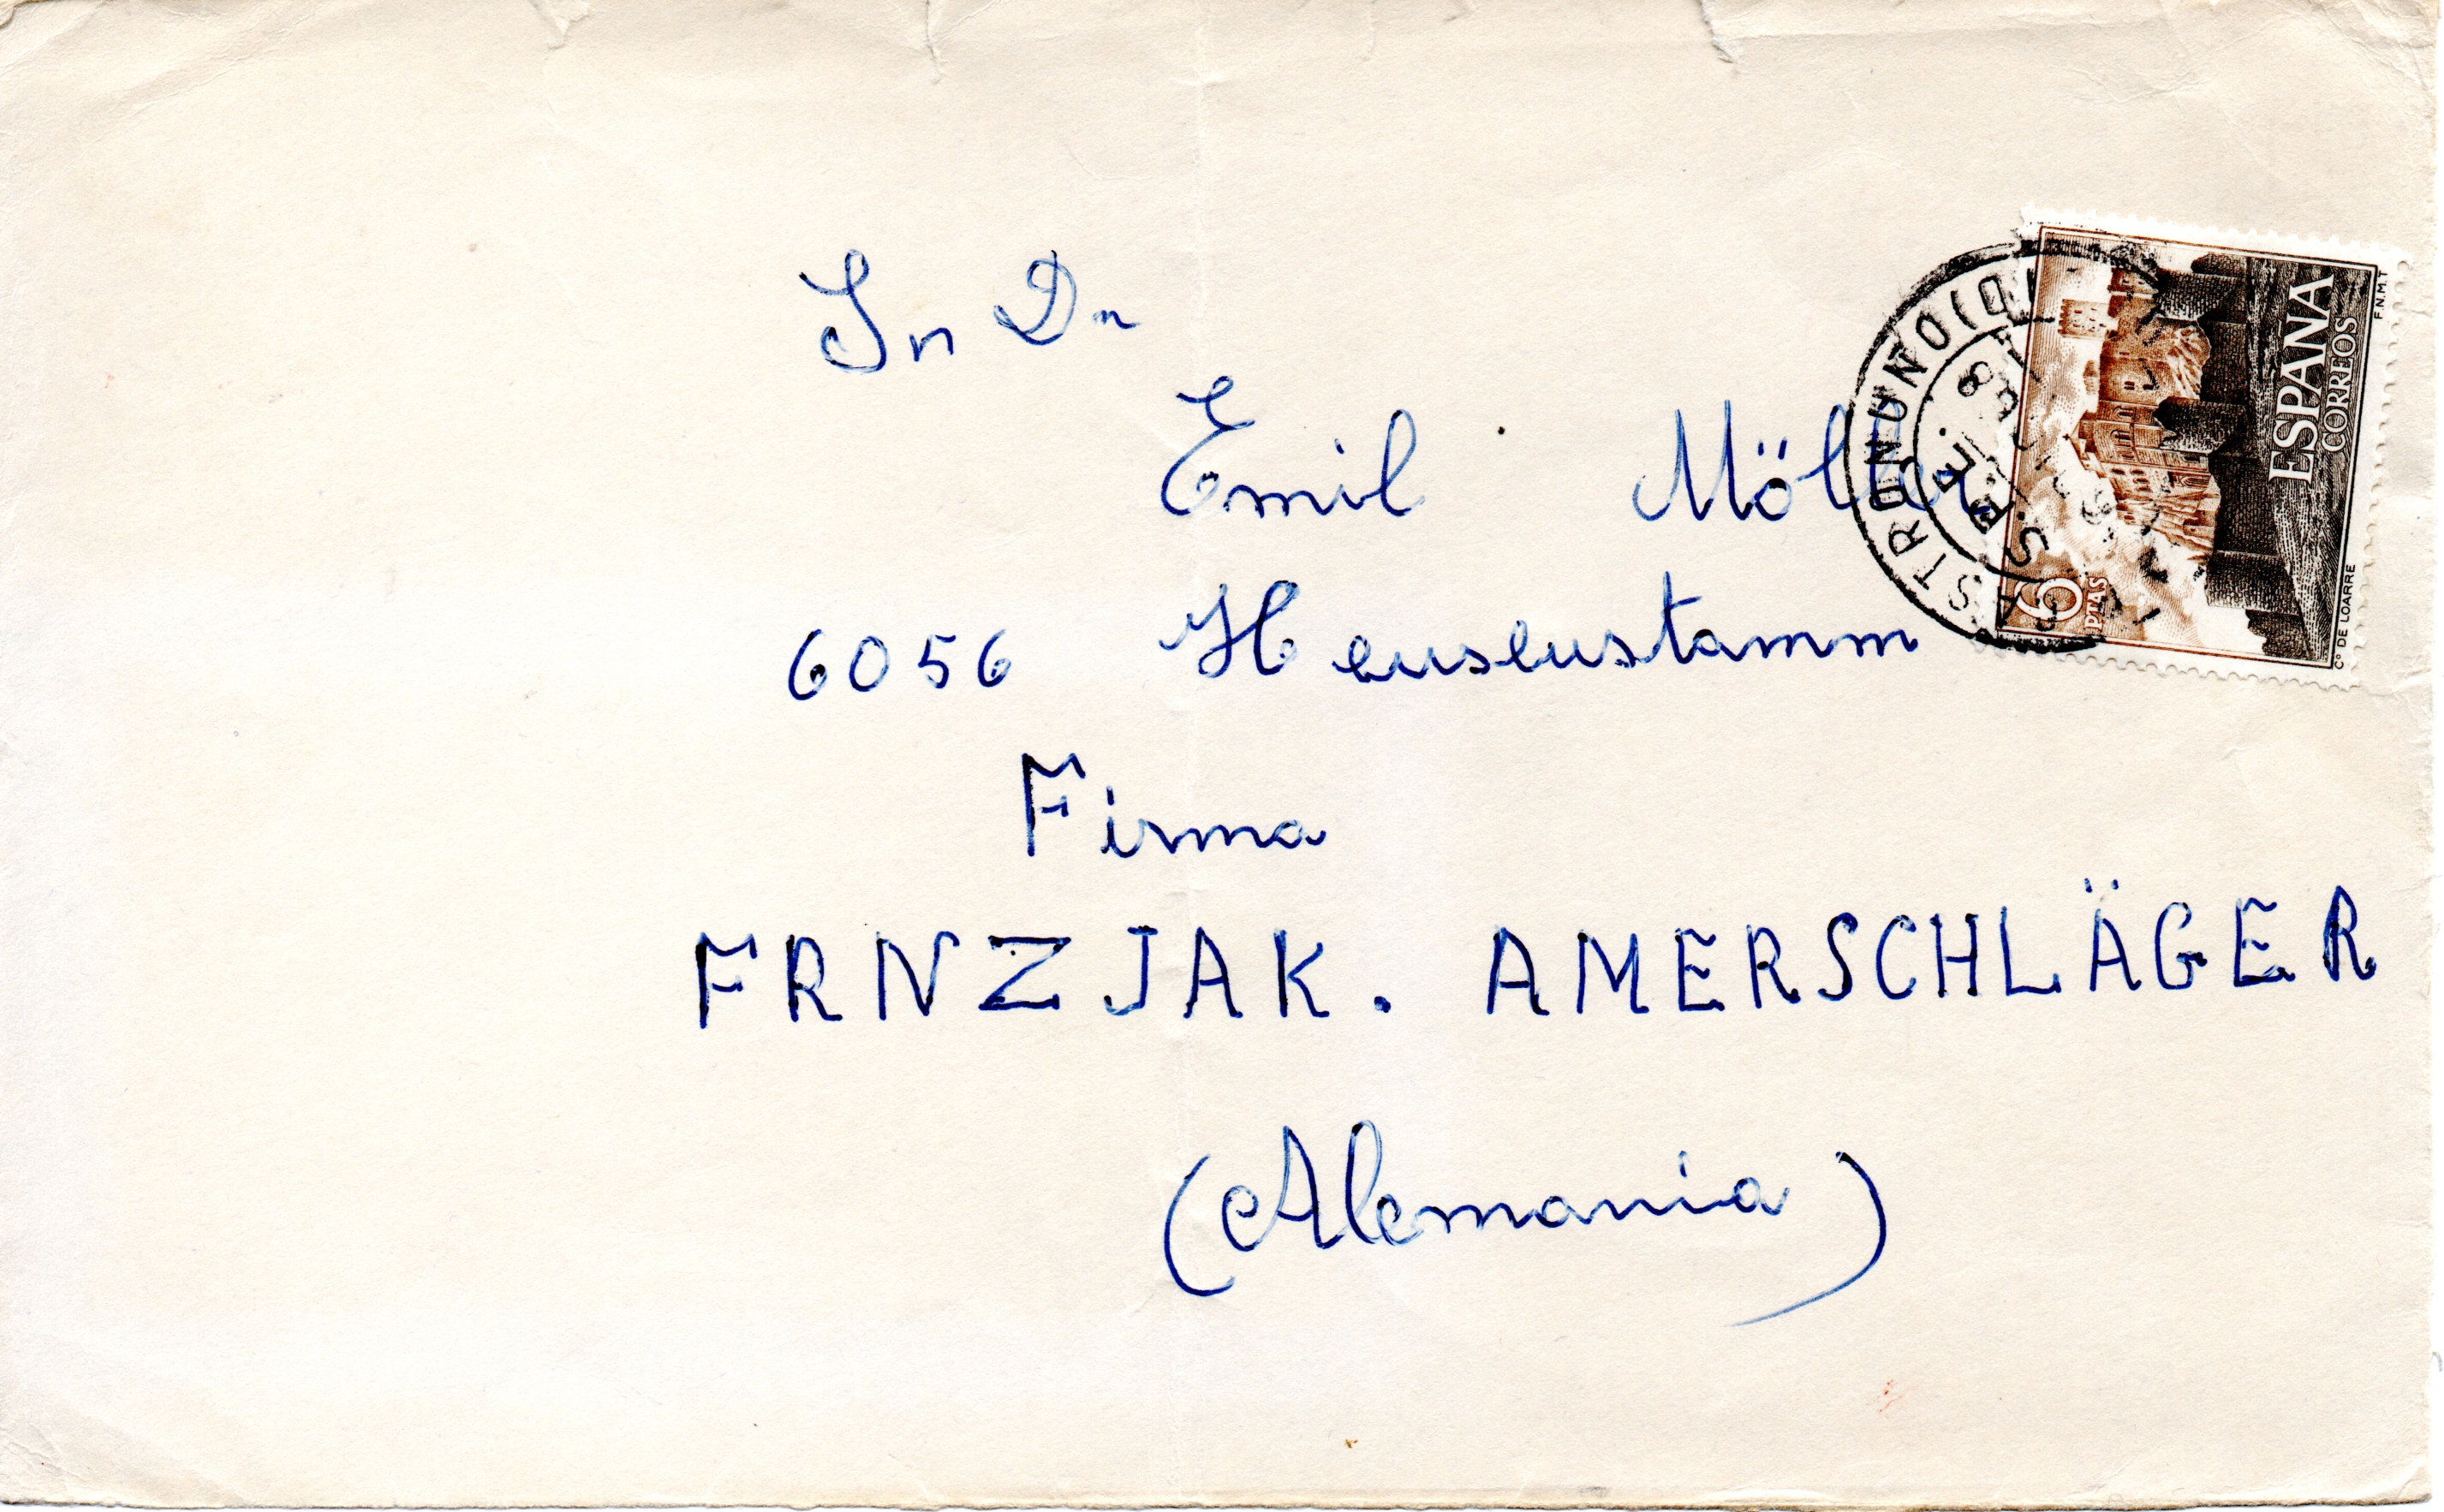 Sr Dn
Emil Möller
6056 Heuseustamm
Firma
FRNZ JAK. AMERSCHLÄGER
(Alemania)
ESPAÑA
CORREOS
6
PTAS
Cº DE LOARRE
F.N.M.T